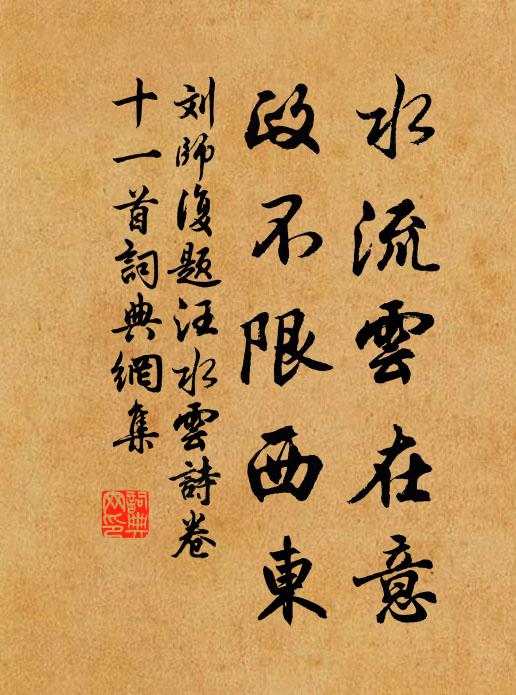 水流雲在意
政不限西東
刘師復題汪水雲詩卷
十一首詞典網集